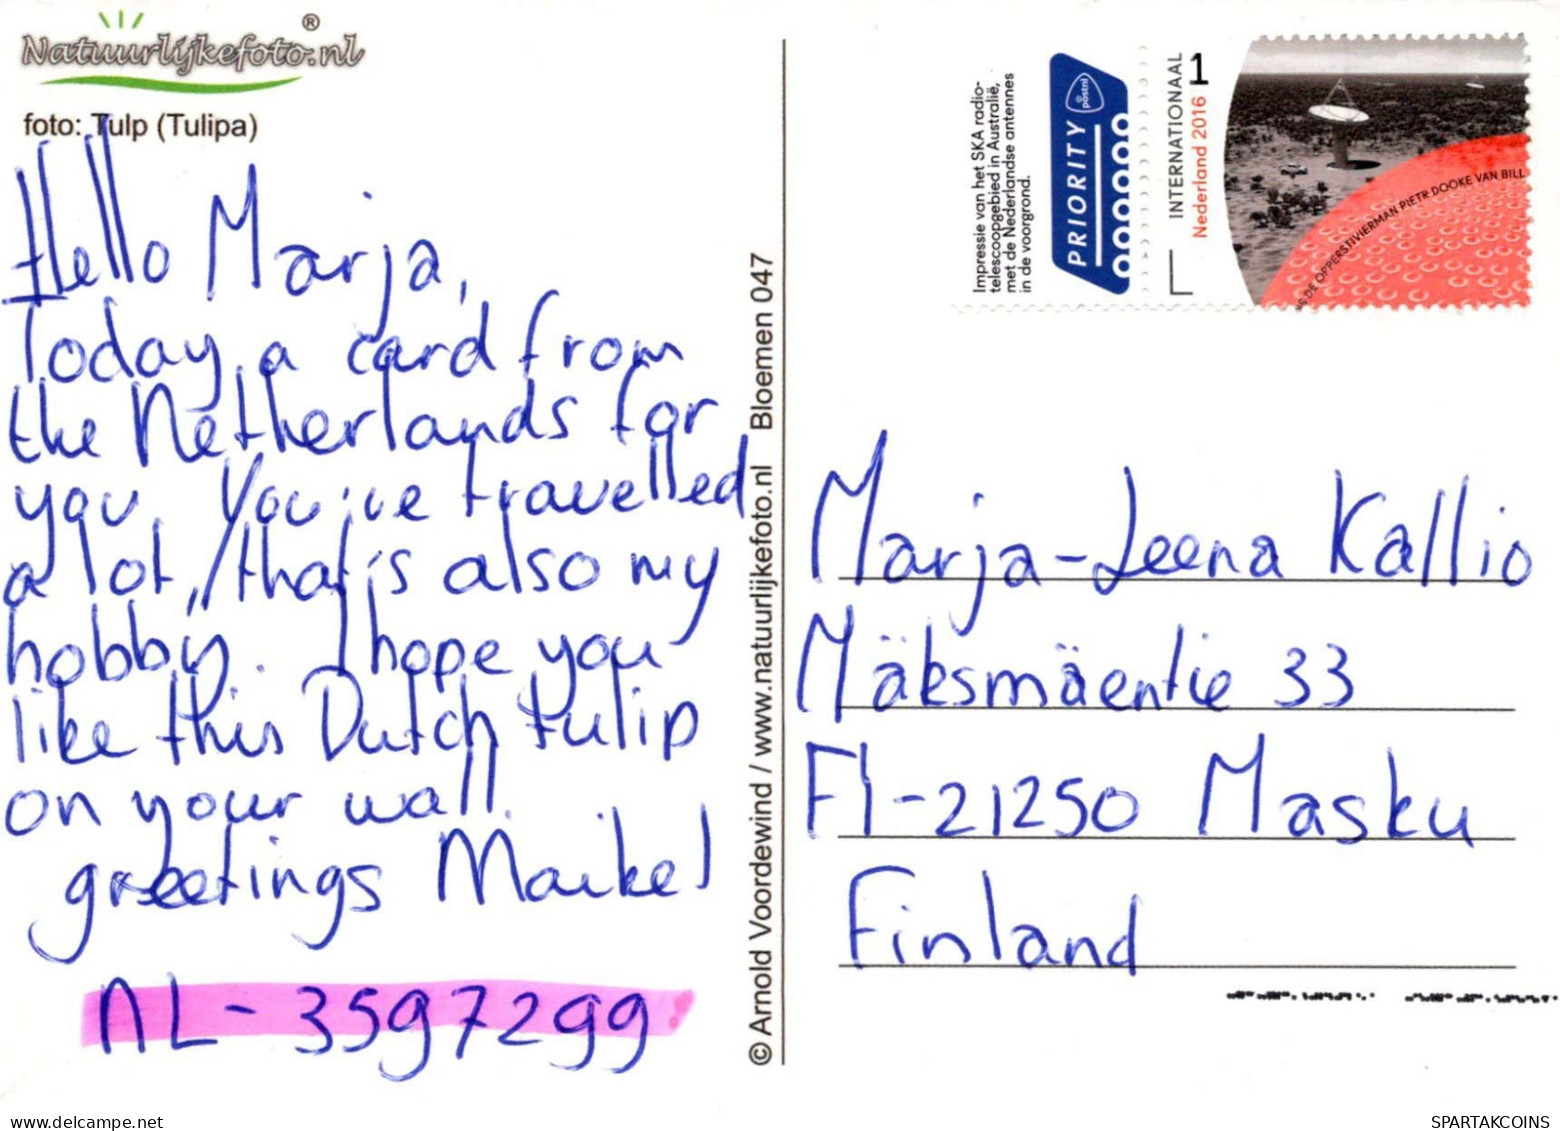 Natuurlijkefoto.nl ®
foto: Tulp (Tulipa)
Hello Marja,
Today a card from
the Netherlands for
you. You've travelled
a lot, that's also my
hobby. I hope you
like this Dutch tulip
on your wall.
greetings Maikel
NL-3597299
© Arnold Voordewind / www.natuurlijkefoto.nl Bloemen 047
Impressie van het SKA radio-
telescoopgebied in Australië,
met de Nederlandse antennes
in de voorgrond.
PRIORITY
postnl
INTERNATIONAAL
1
Nederland 2016
DE OPPERSTIVIERMAN PIETR DOOKE VAN BILL
Marja-Leena Kallio
Mäksmäentie 33
FI-21250 Masku
Finland
delcampe.net
SPARTAKCOINS